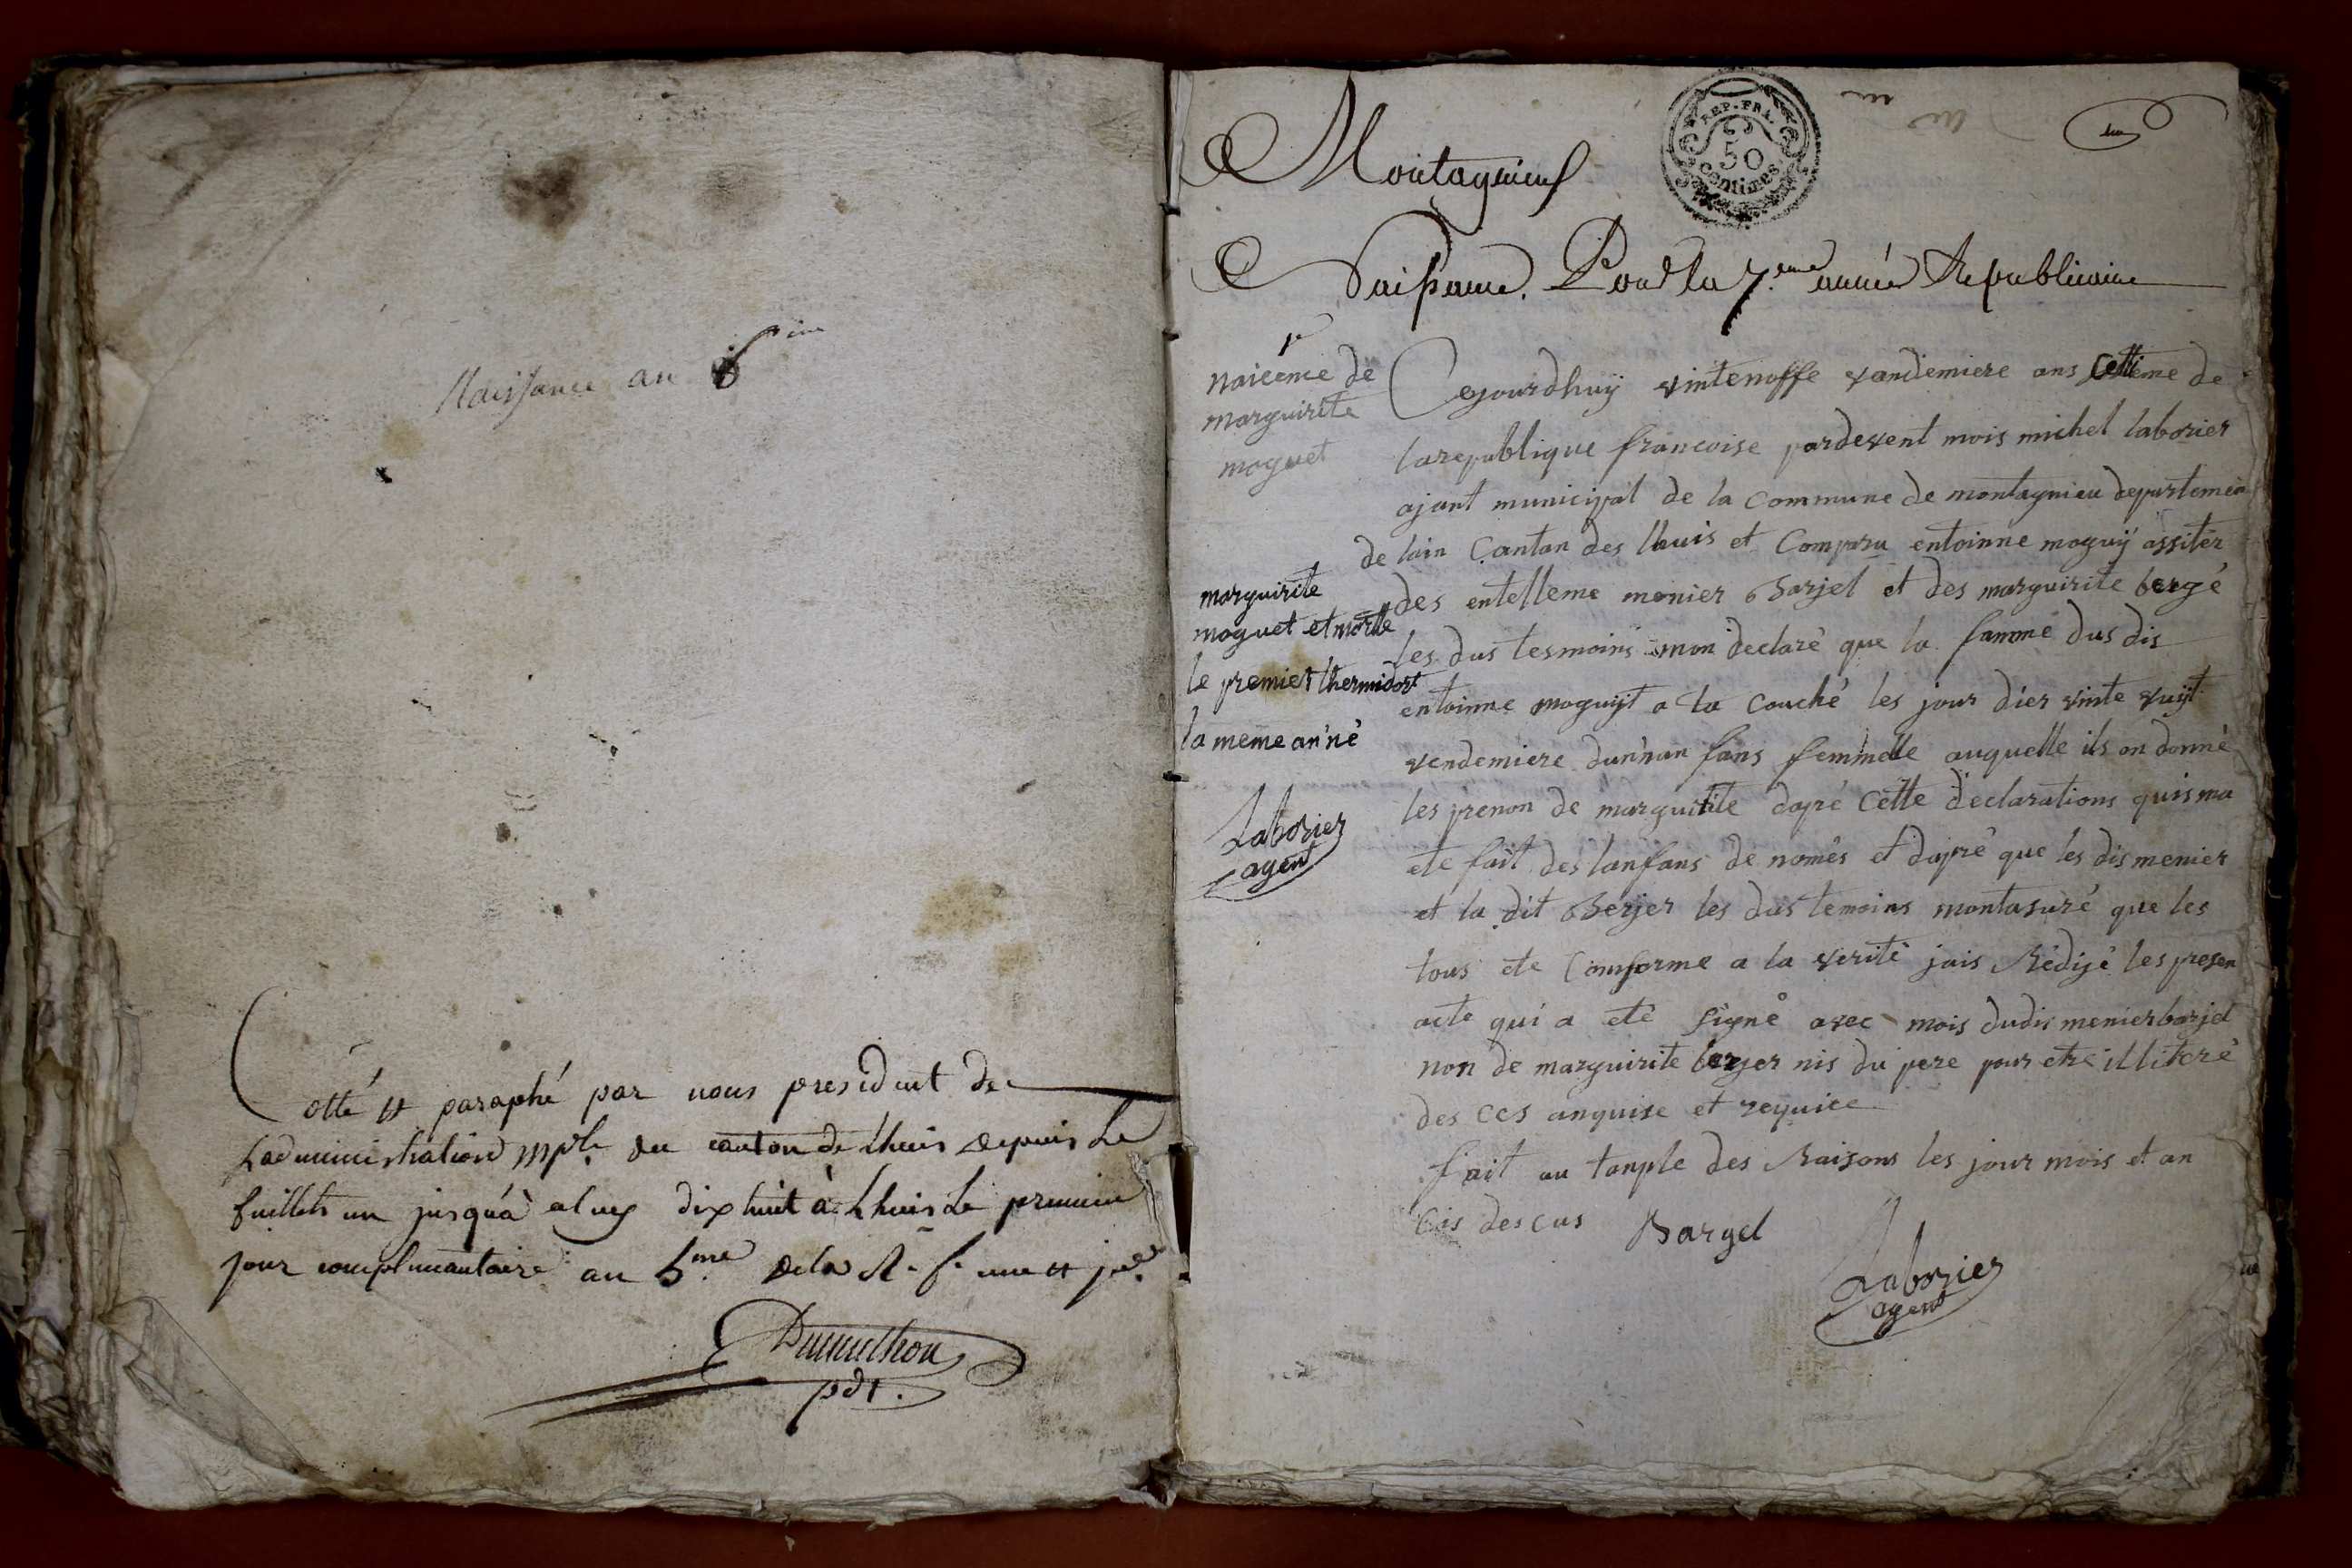 Naissance an 6ime
Cotté et paraphé par nous president de
Ladministration mple. du canton de Lhuis depuis Le
feuillets un jusqu'à dix huit à Lhuis Le premier
jour complimantaire an 6me. dela R. f. une et
Dumulhon
pdt.
Montagnieu
REP. FRA.
50
centimes
un
Naissance. Pour la 7.eme année Republicaine
1r
naicence de
marguirite
moguet
marguirite
moguet et morte
le premier thermidort
la meme an'né
Laborier
agent
Cejourdhuÿ vintenoffe vandemiere ans settieme de
larepublique francoise pardevent mois michel laborier
ajant municipal de la commune de montagnieu departemen
de lain Cantan des lhuis et Comparu entoinne moguÿ assiter
des entelleme monier Barjel et des marguirite bergé
les dus tesmoins mon declaré que la famme dus dis
entoinne moguÿt a la couché les jour dier vinte vuÿt
vendemiere dun'nan fans femmelle auquelle ils on donné
les prenon de marguirite dapré cette declarations quis ma
ete fait des lanfans de només et dapré que les dis menier
et la dit Berjer les dus temoins montasuré que les
tous ete Conforme a la verité jais Rédijé les presen
acte qui a eté signé avec mois dudis menier barjel
non de marguirite berjer nis du pere pour etre illiteré
des ces anquise et requice
fait au tanple des Raisons les jour mois et an
cis descus Bargel
Laborier
agent